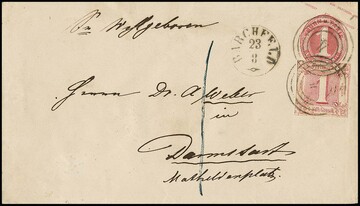 Sr. Wohlgeboren
BARCHFELD
23
8
1
1
Herrn Dr. A. Weber
in
Darmstadt
Mathildenplatz.